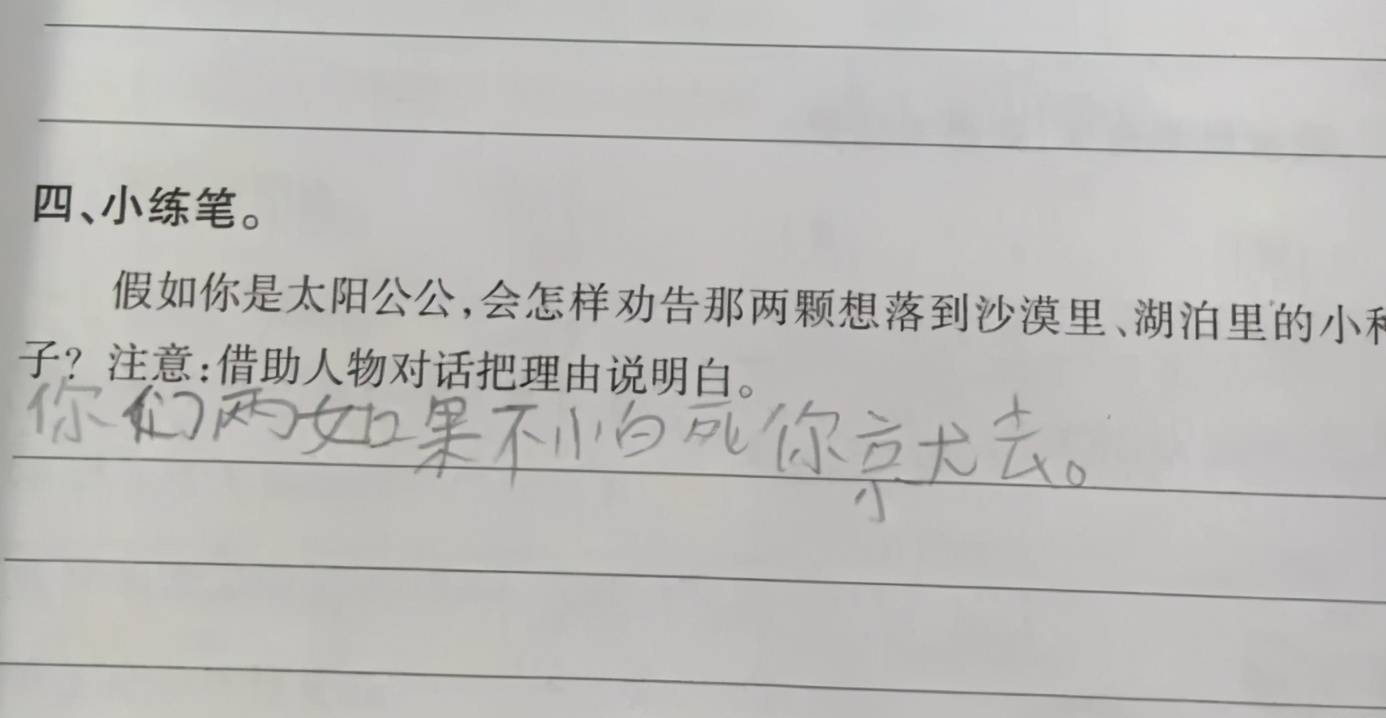 四、小练笔。
假如你是太阳公公,会怎样劝告那两颗想落到沙漠里、湖泊里的小
子?注意:借助人物对话把理由说明白。
你们两如果不怕死你就去。